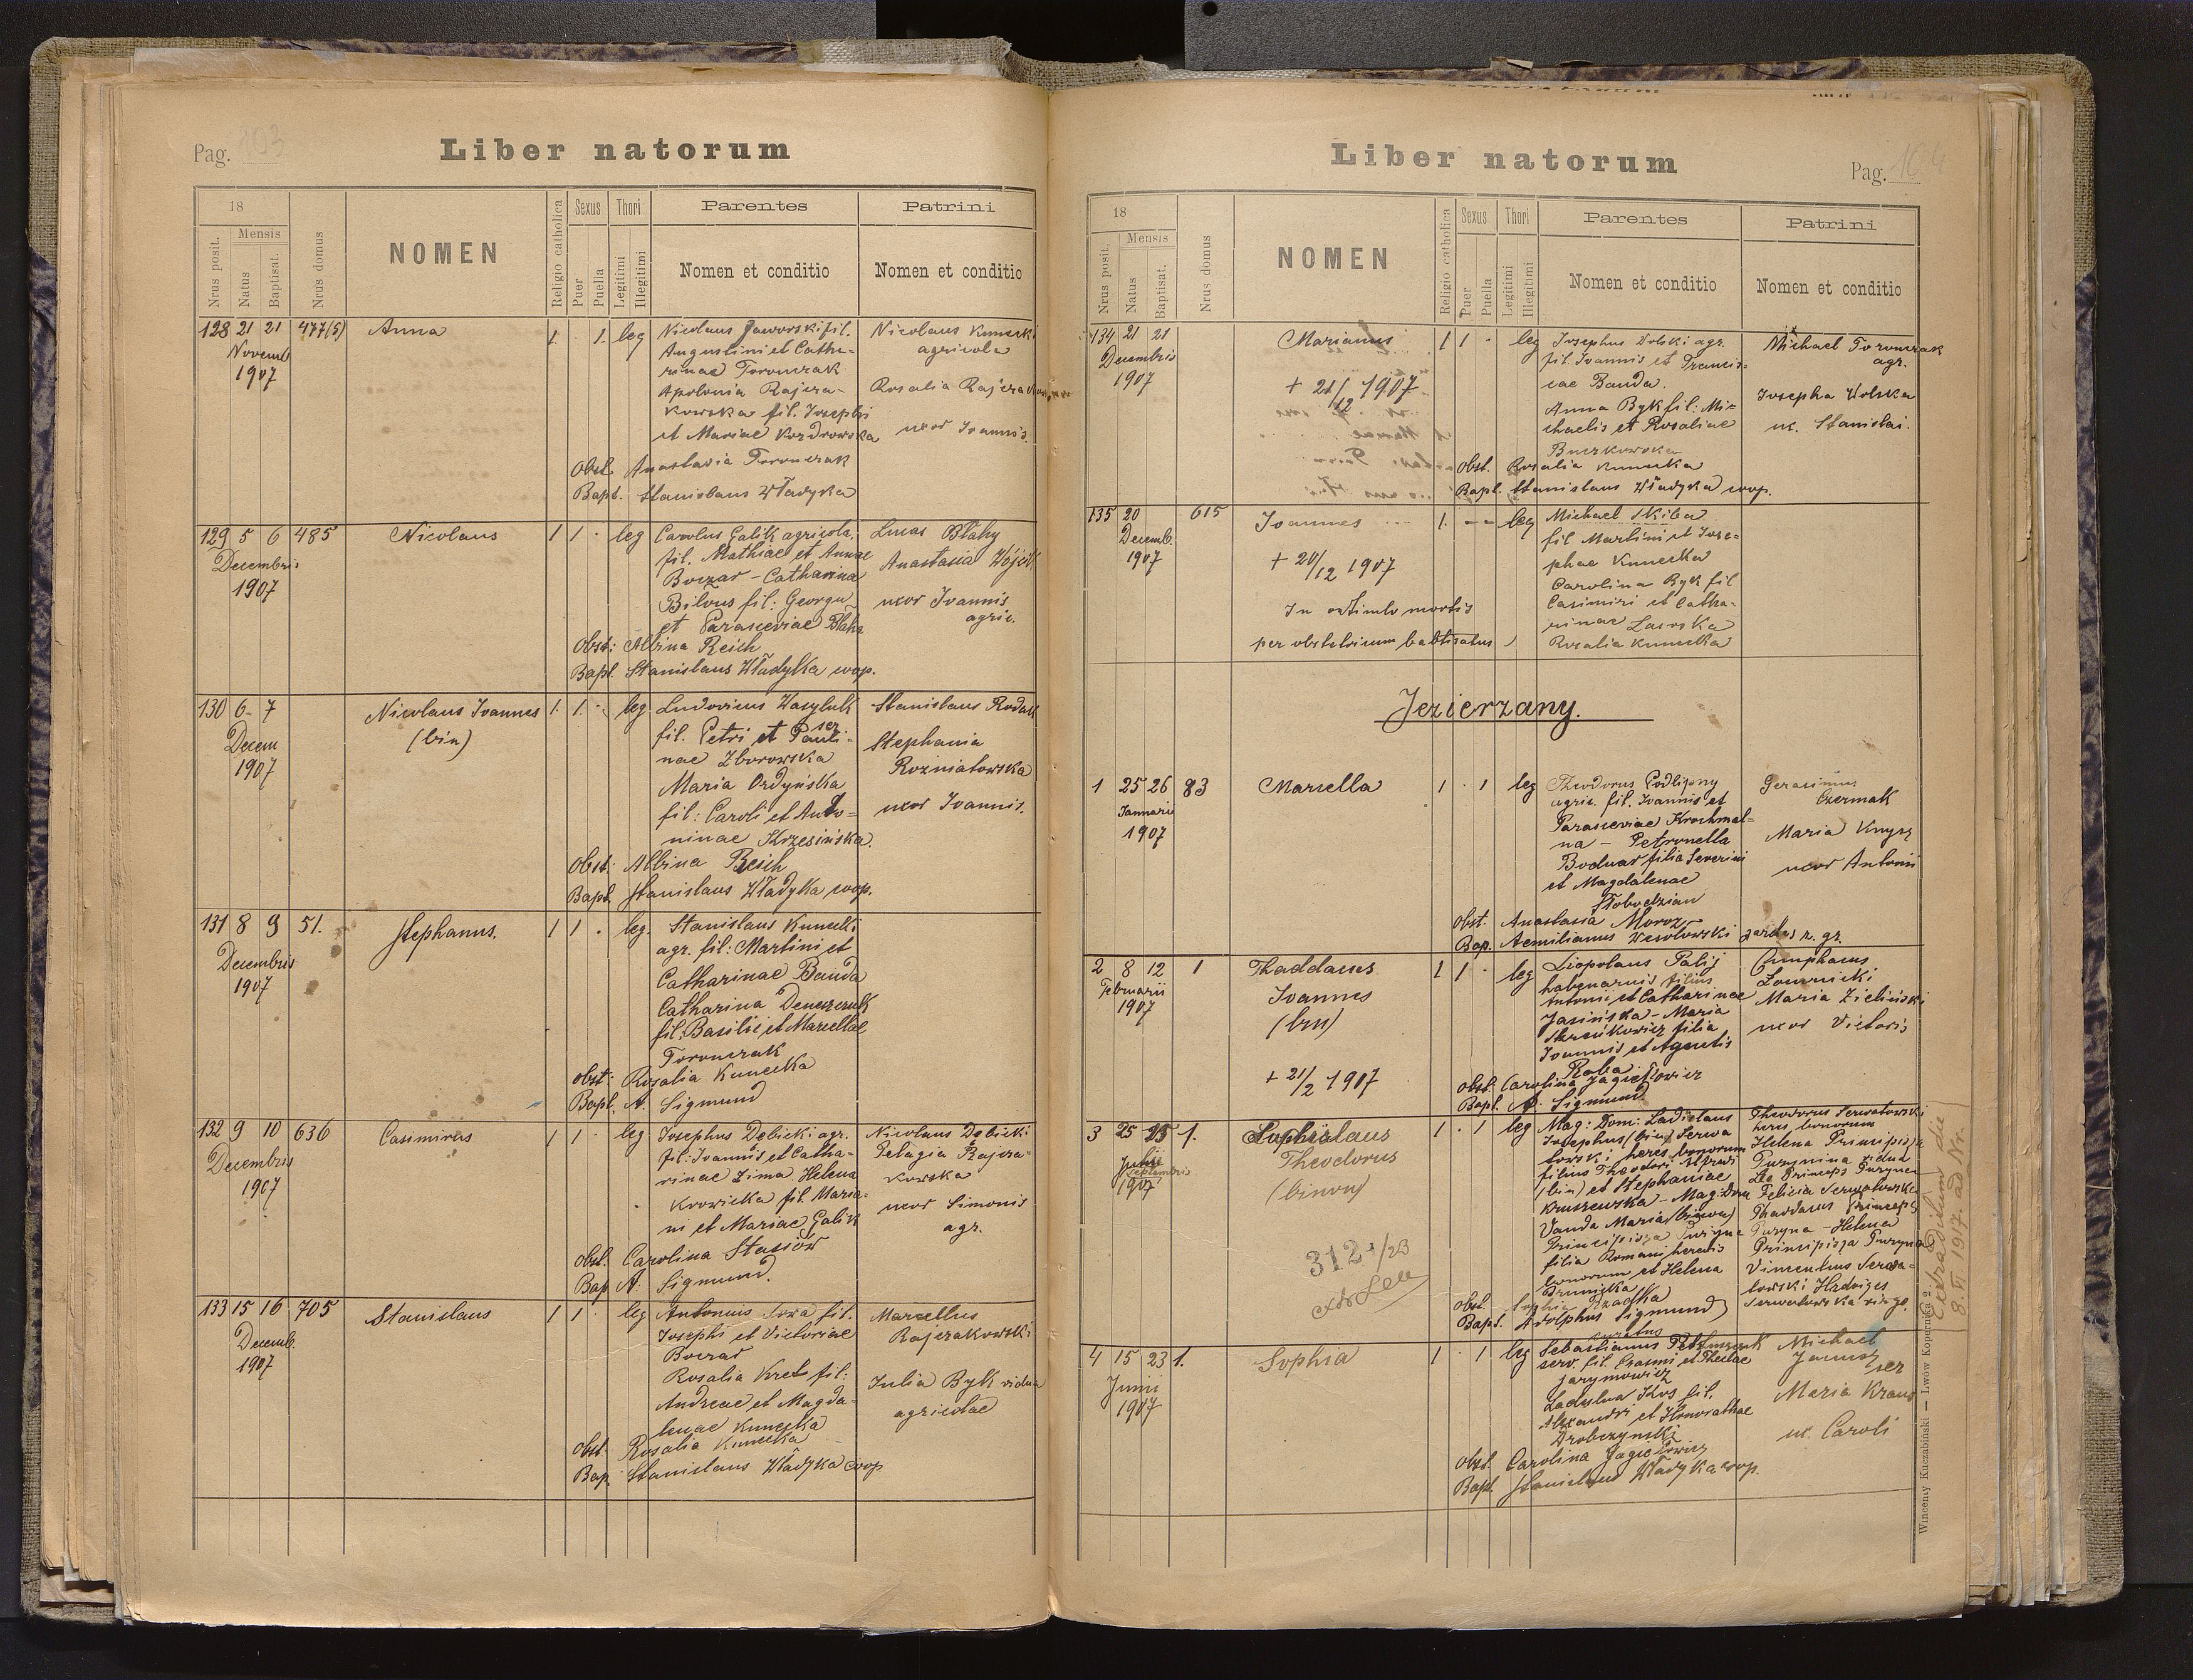 Pag. 103
Liber natorum
18
Nrus posit.
Mensis
Natus
Baptisat.
Nrus domus
NOMEN
Religio catholica
Sexus
Puer
Puella
Thori
Legitimi
Illegitimi
Parentes
Nomen et conditio
Patrini
Nomen et conditio
128 21 21 477(5)
Novemb
1907
Anna
1 . 1. leg
Nicolaus Jaworski fil.
Augustini et Catha-
rinae Toronczak
Apolonia Rajcza-
kowska fil. Josephi
et Mariae Kozdrowska
Nicolaus Kunecki
agricola
Rosalia Rajczakowska
uxor Joannis.
Obst. Anastasia Toronczak
Bapt. Stanislaus Władyka
129 5 6 485
Decembris
1907
Nicolaus
1 1 . leg
Carolus Galik agricola,
fil. Mathiae et Annae
Boczar - Catharina
Bilous fil: Georgii
et Parasceviae Błaha
Lucas Błahy
Anastasia Wójcik
uxor Joannis
agric.
Obst: Albina Reich
Bapt. Stanislaus Władyka coop.
130 6 7
Decem
1907
Nicolaus Joannes
(bin)
1. 1. leg.
Ludovicus Wasyluk
ser
fil. Petri et Pauli-
nae Zborowska
Maria Ordyńska
fil: Caroli et Anto-
ninae Krzesińska.
Stanislaus Rudak
Stephania
Rozniatowska
uxor Joannis.
Obst: Albina Reich
Bapt. Stanislaus Władyka coop.
131 8 9 51.
Decembris
1907
Stephanus.
1 1 . leg.
Stanislaus Kunecki
agr. fil: Martini et
Catharinae Banda
Catharina Deneszczuk
fil: Basilii et Marcellae
Toronczak
Obst: Rosalia Kunecka
Bapt. A. Sigmund
132 9 10 636
Decembris
1907
Casimirus
1 1 . leg
Josephus Dębicki agr.
fil: Joannis et Catha-
rinae Zima. Helena
Krowicka fil. Maria-
ni et Mariae Galik
Nicolaus Dębicki
Pelagia Rajcza-
kowska
uxor Simonis
agr.
Obst: Carolina Stasiów
Bap A. Sigmund.
133 15 16 705
Decemb.
1907
Stanislaus
1 1 . leg
Antonius Sowa fil.
Josephi et Victoriae
Boczar
Rosalia Kret fil:
Andreae et Magda-
lenae Kunecka
Marcellus
Rajczakowski
Julia Byk vidua
agricolae
Obst. Rosalia Kunecka
Bap: Stanislaus Władyka coop
Liber natorum
Pag. 104
18
Nrus posit.
Mensis
Natus
Baptisat.
Nrus domus
NOMEN
Religio catholica
Sexus
Puer
Puella
Thori
Legitimi
Illegitimi
Parentes
Nomen et conditio
Patrini
Nomen et conditio
134 21 21
Decembris
1907
Marianus
+ 21/12 1907
1 1 . leg
Josephus Dolski agr.
fil. Joannis et Francis-
cae Banda.
Anna Byk fil: Mi-
chaelis et Rosaliae
Buczkowska
Michael Toronczak
agr.
Josepha Wolska
ux. Stanislai.
Obst. Rosalia Kunecka
Bapt. Stanislaus Władyka coop.
135 20 615
Decemb.
1907
Joannes
+ 20/12 1907
In articulo mortis
per obstetricem babtisatus
1. -- leg
Michael Skiba
fil Martini et Jose-
phae Kunecka
Carolina Byk fil
Casimiri et Catha-
rinae Lasoska
Rosalia Kunecka
Jezierzany.
1 25 26 83
Januarii
1907
Marcella
1 . 1 leg
Theodorus Podlipny
agric. fil. Joannis et
Parasceviae Krochmal-
na - Petronella
Bodnar filia Severini
et Magdalenae
Słobodzian
Gerasimus
Czermak
Maria Knysz
uxor Antonii
Obst. Anastasia Moroz
Bap. Aemilianus Wesołowski r. gr.
2 8 12 1
Februarii
1907
Thaddaeus
Joannes
(bin)
+ 21/2 1907
1 1 . leg
Liopolaus Palij
filius
Antonii et Catharinae
Jasińska - Maria
filia
Joannis et Agnetis
Raba
Maria Zieliński
uxor Victoris
Obst. Carolina Jagiełłowicz
Bapt. A. Sigmund
3 25 25 1.
Septembris
1907
Theodorus
(binom)
312 1/23
1 . 1 leg
Mag: Dom: Ladislaus
Josephus (bin) Serwa
towski heres bonorum
filius Theodori Alfredi
(bin) et Stephaniae
Kruszewska - Mag: Dom
Vanda Maria (binom)
Principissa Puzyna
filia Romani heredis
bonorum et Helena
Brunicka
Theodorus Serwatowski
heres bonorum
Helena Principissa
Puzynina vidua
Leo Princeps Puzyna
Felicia Serwatowska
Thaddaeus Princeps
Puzyna - Helena
Principissa Puzyna
Vincentius Serwa-
towski Hedviges
Serwatowska virgo.
Obst. Sophia Rzadka
Bapt. Adolphus Sigmund
curatus
Extraditum die
8. VI. 1917. ad Nr.
4 15 23 1.
Junii
1907
Sophia
1 . 1 leg
Sebastianus
serv. fil. Erasmi et Theclae
Jarymowicz
Ladyslva Kos fil.
Alexandri et Honorathae
Drobczynski
Michael
ser
Maria Kraus
ux. Caroli
Obst. Carolina Jagiełłowicz
Bapt. Stanislaus Władyka coop.
Wincenty Kuczabiński — Lwów Kopernika 2.